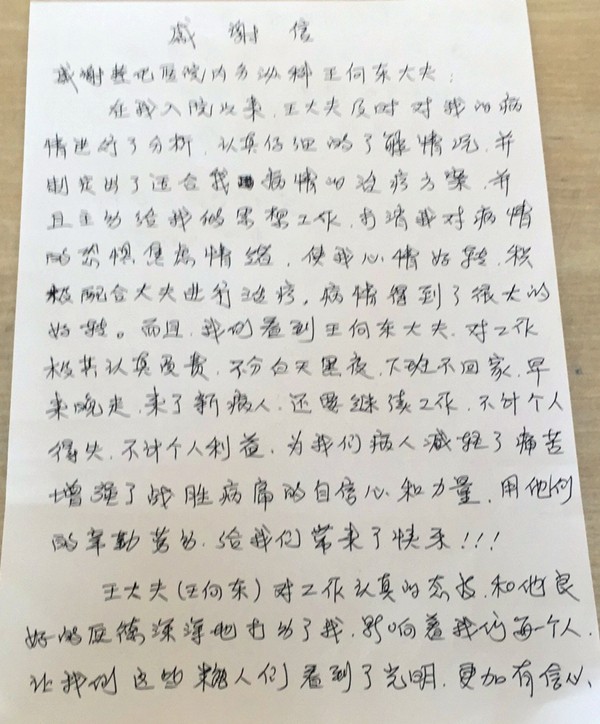 感谢信
感谢整地医院内分泌科王向东大夫:
在我入院以来,王大夫及时对我的病
情进行了分析,认真仔细的了解情况,并
制定出了适合我病情的治疗方案,并
且主动给我做思想工作,打消我对病情
的恐惧焦虑情绪,使我心情好转,积
极配合大夫进行治疗。病情得到了很大的
好转。而且,我们看到王向东大夫,对工作
极其认真负责,不分白天黑夜,下班不回家,早
来晚走,来了新病人,还要继续工作,不计个人
得失,不计个人利益,为我们病人减轻了痛苦
增强了战胜病痛的自信心和力量,用他们
的辛勤劳动,给我们带来了快乐!!!
王大夫(王向东)对工作认真的态度,和他良
好的医德深深地打动了我,影响着我们每个人,
让我们这些糖人们看到了光明,更加有信心、